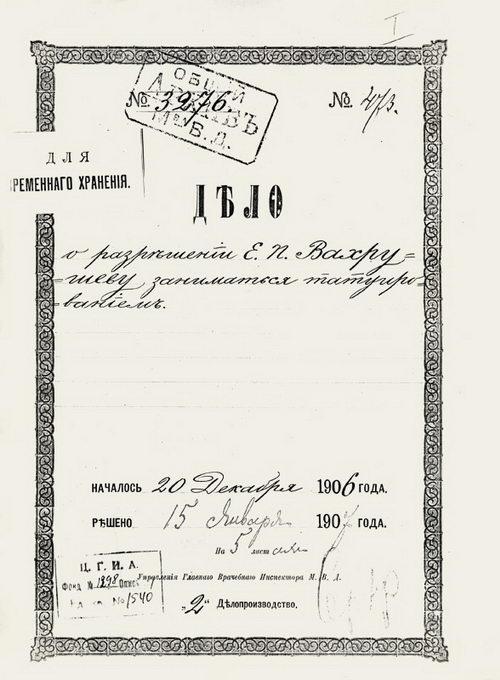 I
ОБЩІЙ
АРХИВЪ
М. В. Д.
№ 3276.
№ 473.
ДЛЯ
РЕМЕННАГО ХРАНЕНІЯ.
ДѢЛО
о разрѣшеніи Е. П. Вахру=
=шеву заниматься татуиро=
=ваніемъ.
НАЧАЛОСЬ 20 Декабря 1906 ГОДА.
РѢШЕНО 15 Января 1907 ГОДА.
На 5 листахъ
Ц. Г. И. А.
Фонд № 1298 Опись
№ 1540
Управленія Главнаго Врачебнаго Инспектора М. В. Д.
„2" Дѣлопроизводство.